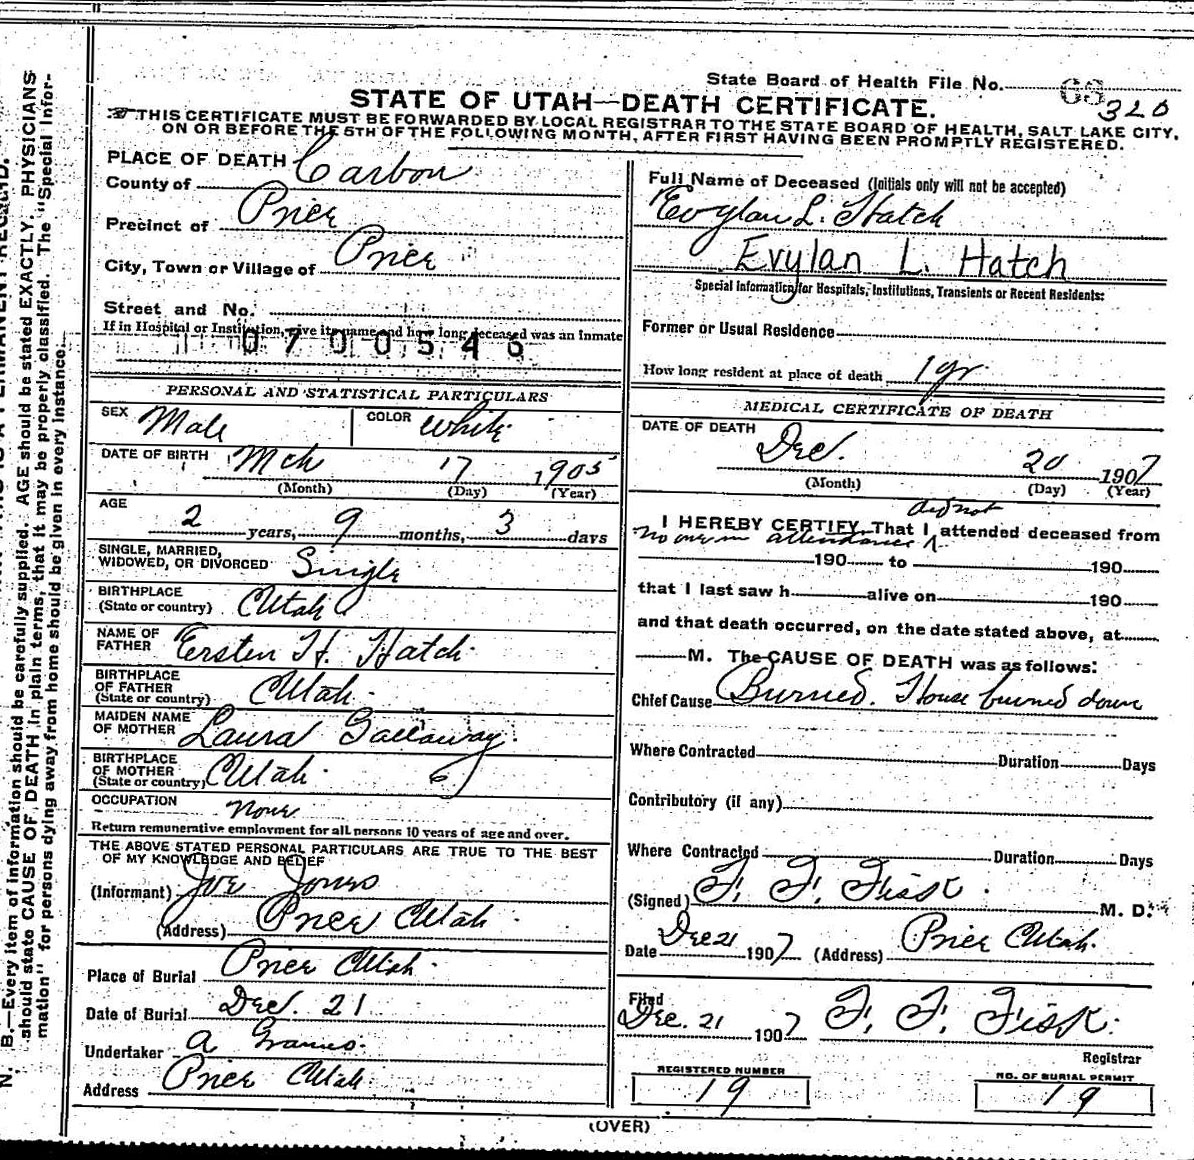 State Board of Health File No. 68 320
STATE OF UTAH—DEATH CERTIFICATE.
THIS CERTIFICATE MUST BE FORWARDED BY LOCAL REGISTRAR TO THE STATE BOARD OF HEALTH, SALT LAKE CITY,
ON OR BEFORE THE 5TH OF THE FOLLOWING MONTH, AFTER FIRST HAVING BEEN PROMPTLY REGISTERED.
PLACE OF DEATH
County of Carbon
Precinct of Price
City, Town or Village of Price
Street and No.
If in Hospital or Institution, give its name and how long deceased was an Inmate
0700546
PERSONAL AND STATISTICAL PARTICULARS
SEX Male COLOR White
DATE OF BIRTH Mch 17 1905
(Month) (Day) (Year)
AGE
2 years, 9 months, 3 days
SINGLE, MARRIED,
WIDOWED, OR DIVORCED Single
BIRTHPLACE
(State or country) Utah
NAME OF
FATHER Ersten H. Hatch
BIRTHPLACE
OF FATHER
(State or country) Utah
MAIDEN NAME
OF MOTHER Laura Gallaway
BIRTHPLACE
OF MOTHER
(State or country) Utah
OCCUPATION None
Return remunerative employment for all persons 10 years of age and over.
THE ABOVE STATED PERSONAL PARTICULARS ARE TRUE TO THE BEST
OF MY KNOWLEDGE AND BELIEF
(Informant) Joe Jones
(Address) Price Utah
Place of Burial Price Utah
Date of Burial Dec. 21
Undertaker A
Address Price Utah
Full Name of Deceased (Initials only will not be accepted)
Evylan L. Hatch
Evylan L. Hatch
Special Information for Hospitals, Institutions, Transients or Recent Residents:
Former or Usual Residence
How long resident at place of death 1 yr
MEDICAL CERTIFICATE OF DEATH
DATE OF DEATH
Dec. 20 1907
(Month) (Day) (Year)
did not
I HEREBY CERTIFY That I attended deceased from
no one in attendance
190 to 190
that I last saw h alive on 190
and that death occurred, on the date stated above, at
M. The CAUSE OF DEATH was as follows:
Chief Cause Burned. House burned down
Where Contracted Duration Days
Contributory (if any)
Where Contracted Duration Days
(Signed) F. F. Fisk M. D.
Date Dec 21 1907 (Address) Price Utah.
Filed
Dec. 21 1907 F. F. Fisk.
Registrar
REGISTERED NUMBER
19
NO. OF BURIAL PERMIT
19
(OVER)
N. B.—Every item of information should be carefully supplied. AGE should be stated EXACTLY. PHYSICIANS
should state CAUSE OF DEATH in plain terms, that it may be properly classified. The "Special Infor-
mation" for persons dying away from home should be given in every instance.